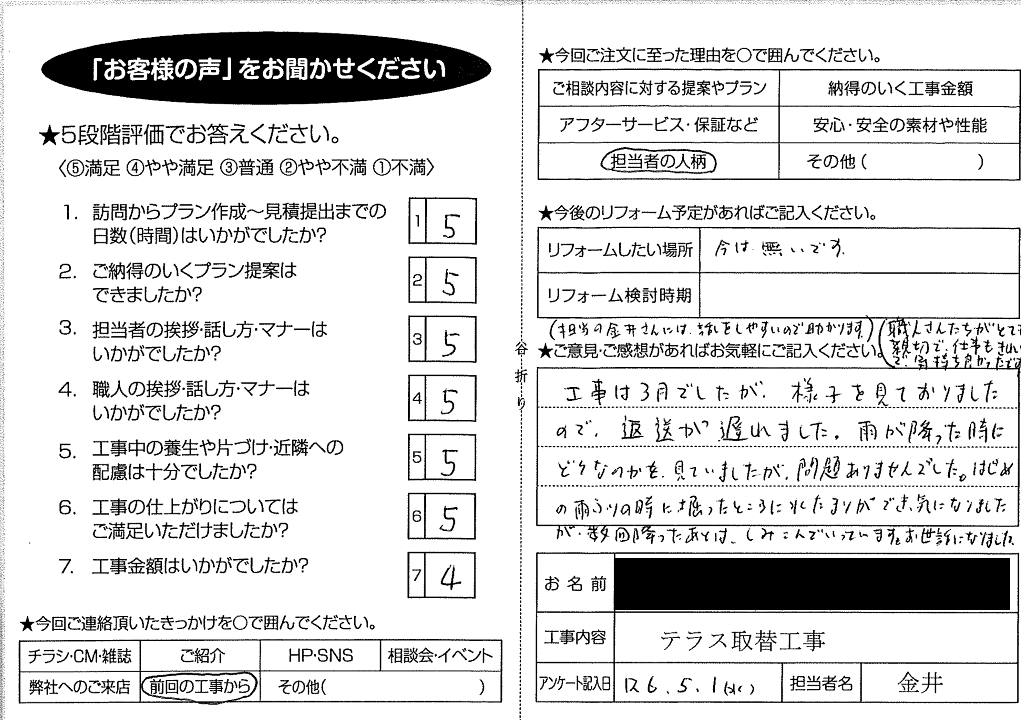 「お客様の声」をお聞かせください
★5段階評価でお答えください。
〈⑤満足 ④やや満足 ③普通 ②やや不満 ①不満〉
1. 訪問からプラン作成〜見積提出までの
日数(時間)はいかがでしたか?
1 5
2. ご納得のいくプラン提案は
できましたか?
2 5
3. 担当者の挨拶・話し方・マナーは
いかがでしたか?
3 5
4. 職人の挨拶・話し方・マナーは
いかがでしたか?
4 5
5. 工事中の養生や片づけ・近隣への
配慮は十分でしたか?
5 5
6. 工事の仕上がりについては
ご満足いただけましたか?
6 5
7. 工事金額はいかがでしたか?
7 4
★今回ご連絡頂いたきっかけを○で囲んでください。
チラシ・CM・雑誌 ご紹介 HP・SNS 相談会・イベント
弊社へのご来店 前回の工事から その他( )
谷折り
★今回ご注文に至った理由を○で囲んでください。
ご相談内容に対する提案やプラン 納得のいく工事金額
アフターサービス・保証など 安心・安全の素材や性能
担当者の人柄 その他( )
★今後のリフォーム予定があればご記入ください。
リフォームしたい場所 今は無いです。
リフォーム検討時期
(担当の金井さんには、話をしやすいので助かります)
(職人さんたちがとても
親切で、仕事もきれい
で、気持ち良かったです
★ご意見・ご感想があればお気軽にご記入ください。
工事は3月でしたが、様子を見ておりました
ので、返送が遅れました。雨が降った時に
どうなのかを、見ていましたが、問題ありませんでした。はじめ
の雨ふりの時に堀ったところに水たまりができ、気になりました
が、数回降ったあとは、しみこんでいっています。お世話になりました。
お名前
工事内容 テラス取替工事
アンケート記入日 R6.5.1(水) 担当者名 金井